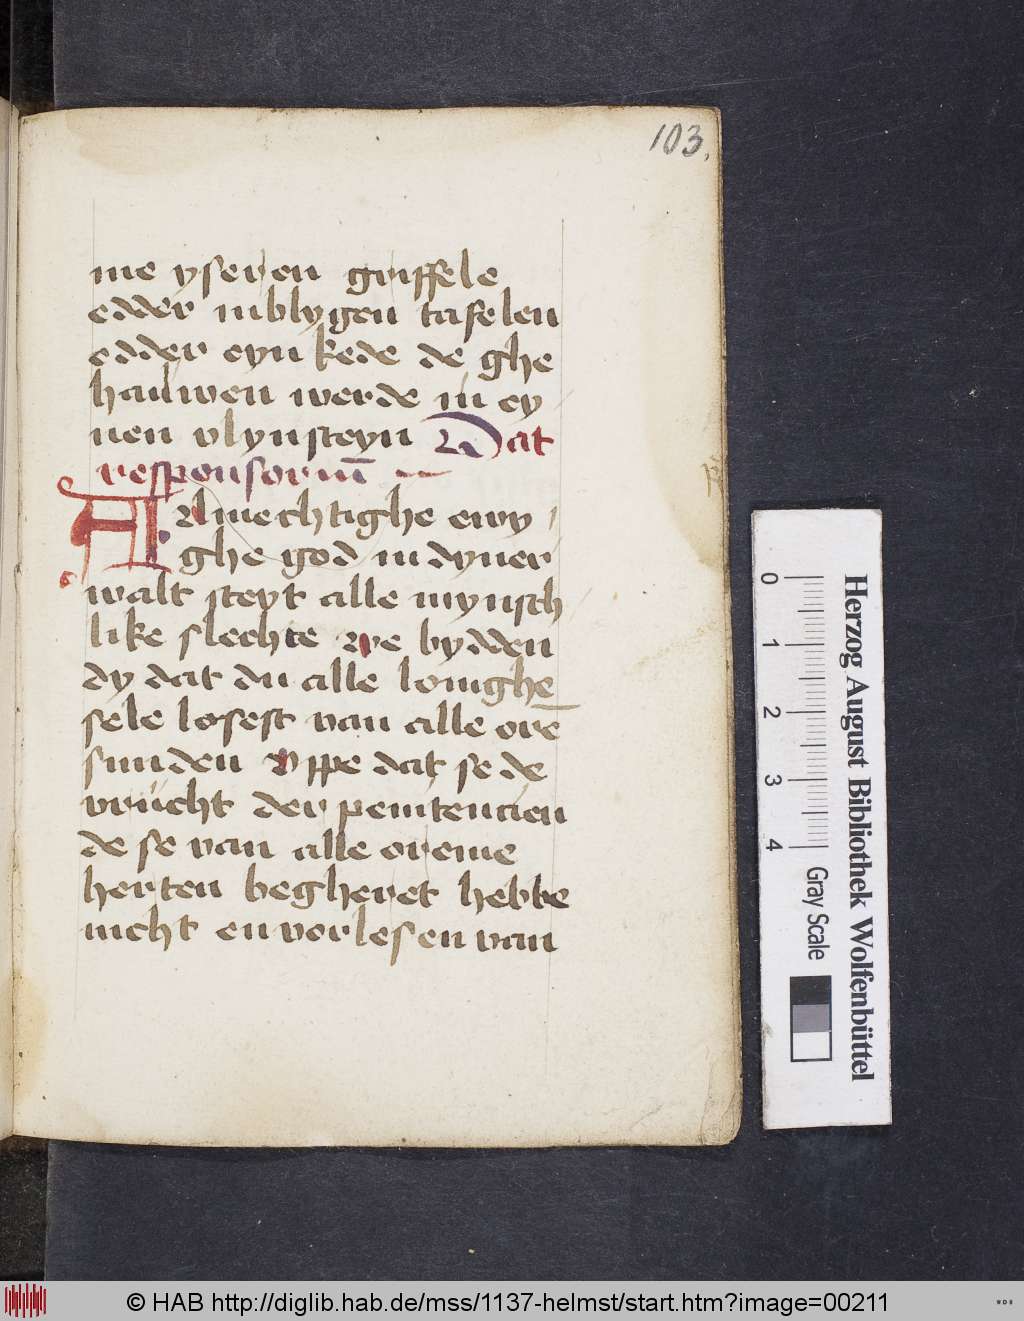 103.
me yseren griffele
edder in blygen tafelen
edder eyn kede de ghe
hauwen werde in ey
nen vlynsteyn Dat
responsoriū
Almechtighe ewy
ghe god in dyner
walt steyt alle mynsch
like slechte we bydden
dy dat du alle louighe
sele losest van alle orē
sunden vppe dat se de
vrucht der penitencien
de se van alle oreme
herten begheret hebbe
nicht en vorlesen van
Herzog August Bibliothek Wolfenbüttel
0 1 2 3 4
Gray Scale
© HAB http://diglib.hab.de/mss/1137-helmst/start.htm?image=00211